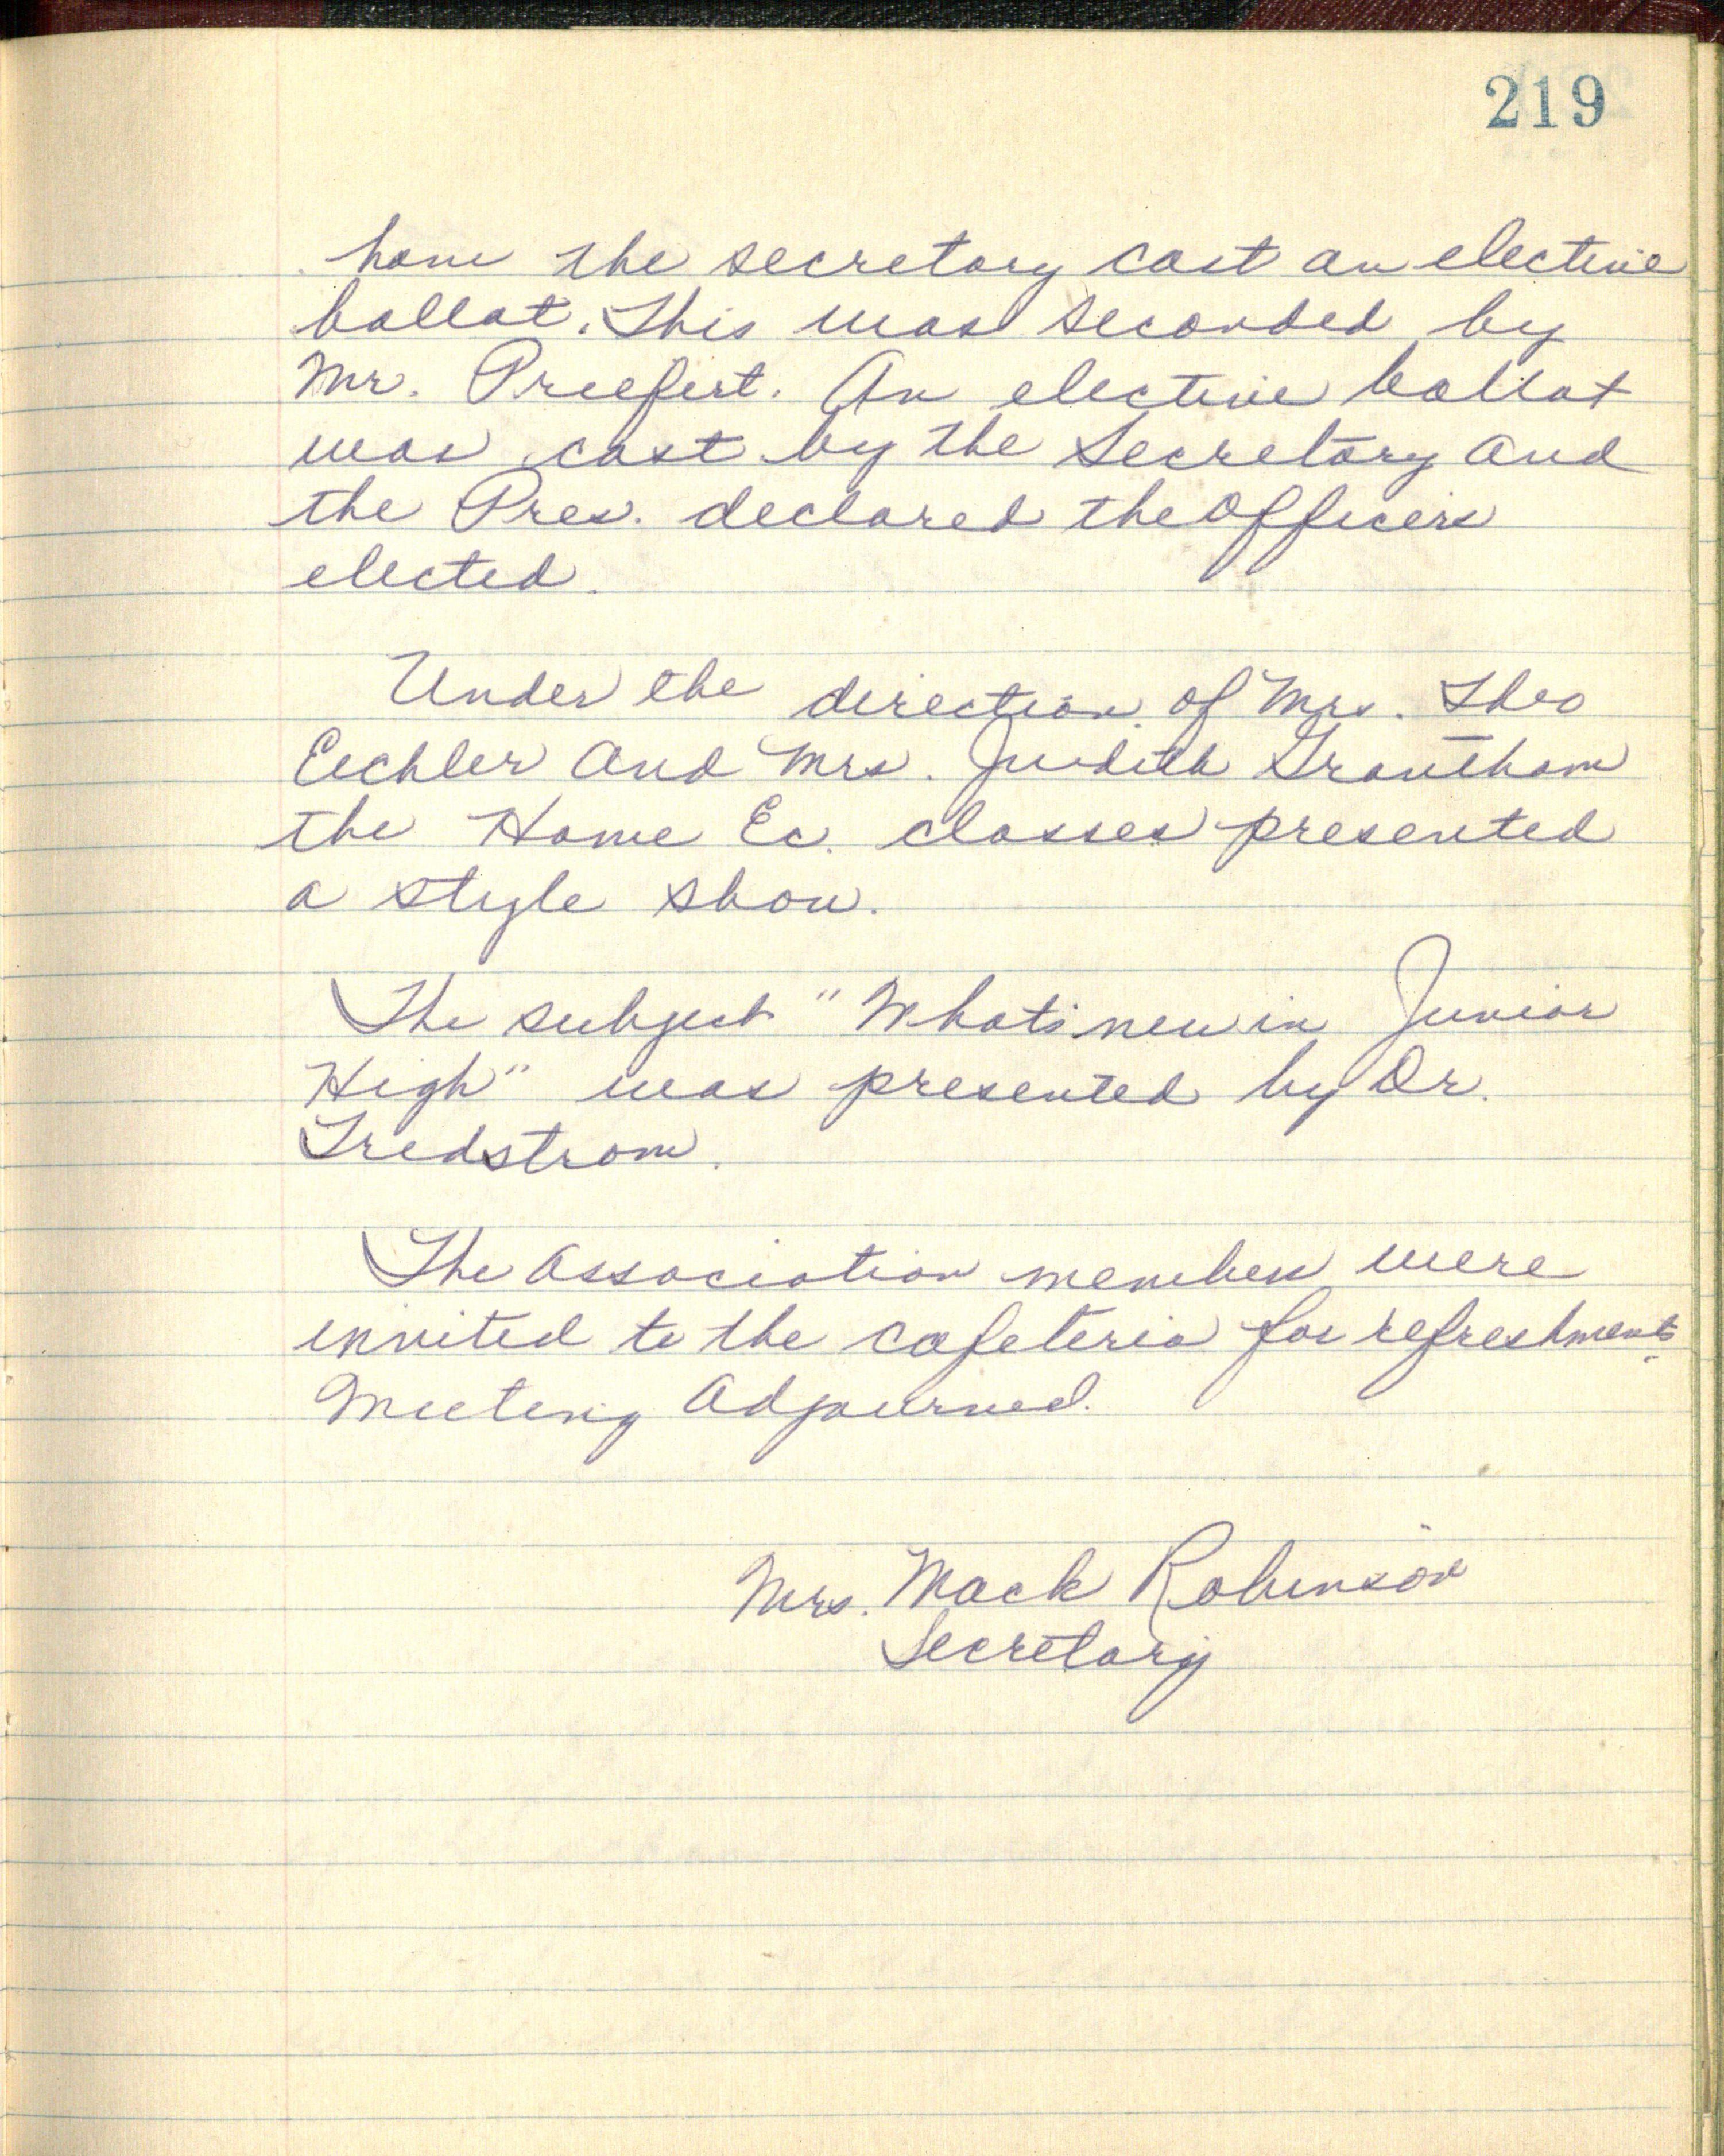 219
have the secretary cast an elective
ballot. This was seconded by
Mr. Priefert. An elective ballot
was cast by the Secretary and
the Pres. declared the officers
elected.
Under the direction of Mrs. Theo
Eichler and Mrs. Judith Grantham
the Home Ec. classes presented
a style show.
The subject "What's new in Junior
High" was presented by Dr.
Fredstrom.
The Association members were
invited to the cafeteria for refreshments.
Meeting Adjourned.
Mrs. Mack Robinson
Secretary